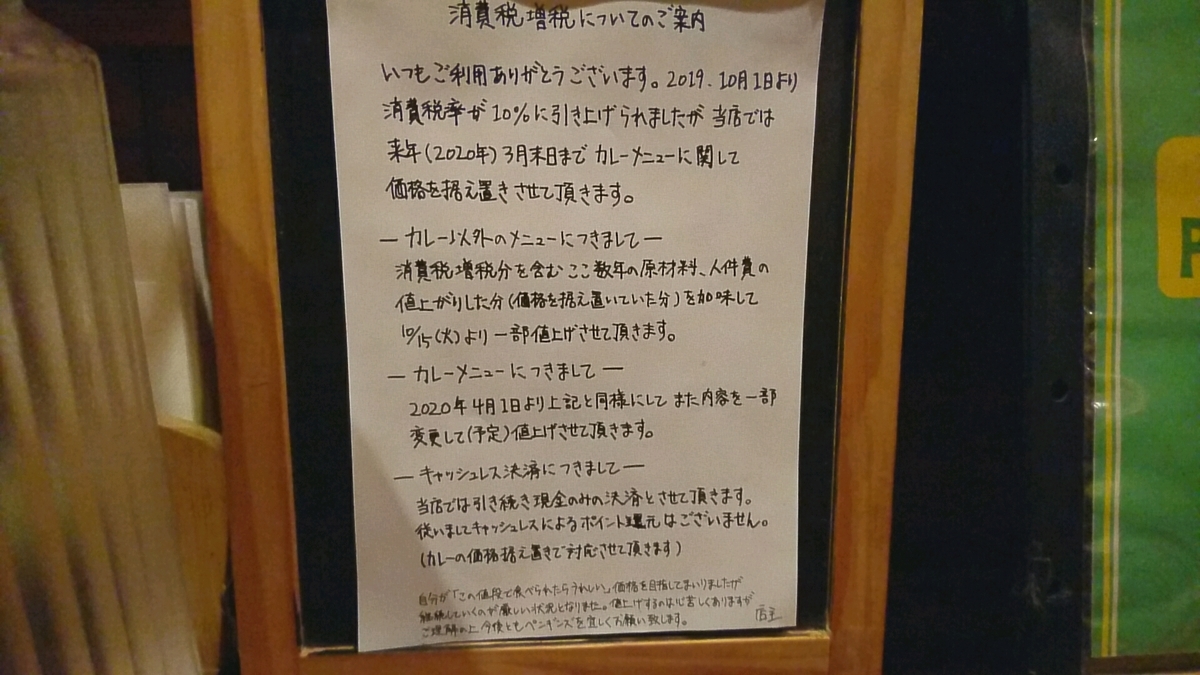 消費税増税についてのご案内
いつもご利用ありがとうございます。2019.10月1日より
消費税率が10%に引き上げられましたが 当店では
来年(2020年)3月末日まで カレーメニューに関して
価格を据え置きさせて頂きます。
― カレー以外のメニューにつきまして ―
消費税増税分を含む ここ数年の原材料、人件費の
値上がりした分(価格を据え置いていた分)を加味して
10/15(火)より 一部値上げさせて頂きます。
― カレーメニューにつきまして ―
2020年4月1日より上記と同様にして また内容を一部
変更して(予定)値上げさせて頂きます。
― キャッシュレス決済につきまして ―
当店では引き続き現金のみの決済とさせて頂きます。
従いましてキャッシュレスによるポイント還元はございません。
(カレーの価格据え置きで対応させて頂きます)
自分が「この値段で食べられたらうれしい」価格を目指してまいりましたが
継続していくのが厳しい状況となりました。値上げするのは心苦しくありますが
ご理解の上 今後ともペンギンズを宜しくお願い致します。
店主